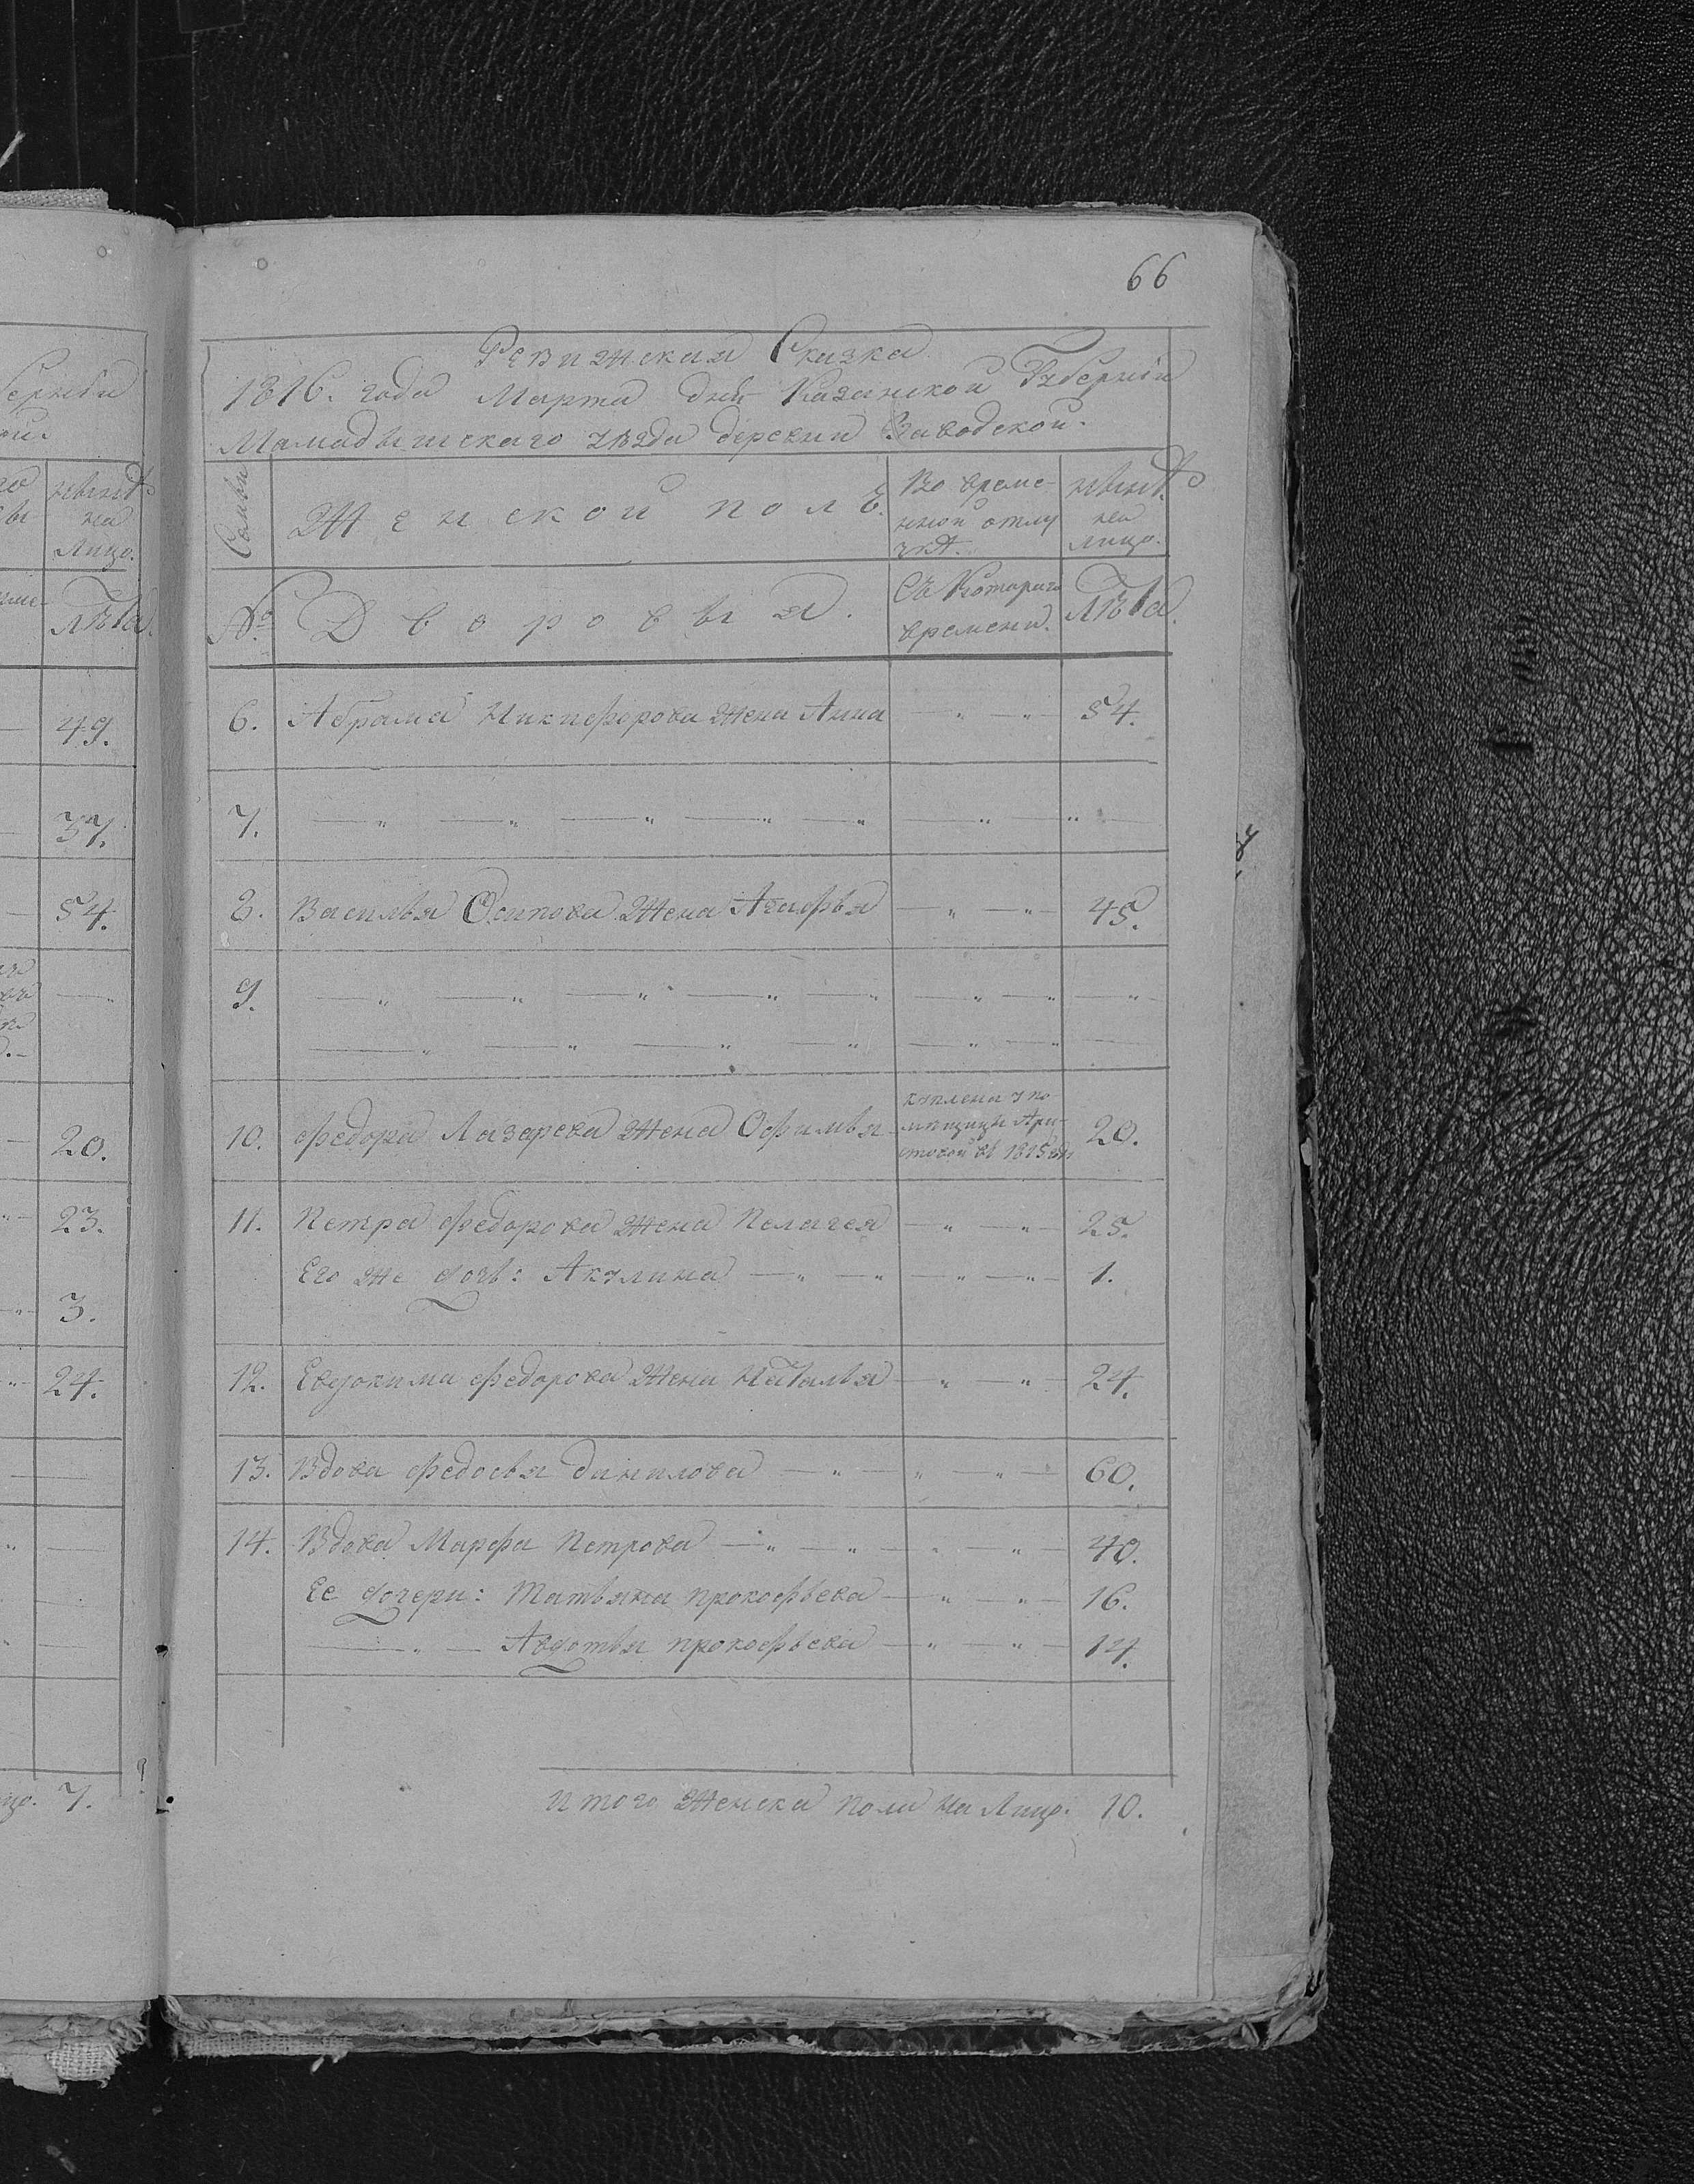 66
Ревижская Сказка
1816. года Марта дня Казанской Губернїи
Мамадышскаго уѣзда деревни Заводской.
Семьи
Женской полъ.
Во време-
нной отлу
чкѣ.
нынѣ
на
лицо.
№
Дворовыя.
Съ Котораго
времени.
Лѣта.
6. Абрама Никифорова Жена Анна — „ — „ — 54.
7. — „ — „ — „ — „ — „ — „ — „ —
8. Василья Осипова Жена Агафья — „ — „ — 45.
9. — „ — „ — „ — „ — „ — „ — „ — „
— „ — „ — „ — „ — „ — „ —
10. Федора Лазарева Жена Офимья
куплена у по
мѣщицы Ари-
стовой въ 1815
20.
11. Петра Федорова Жена Пелагея — „ — „ — 25.
Его же дочь: Акулина — „ — „ — „ — „ — 1.
12. Евдокима Федорова Жена Наталья — „ — „ — 24.
13. Вдова Федосья данилова — „ — „ — „ — 60.
14. Вдова Марфа Петрова — „ — „ — „ — „ — 40.
Ее дочери: Татьяна прокофьева — „ — „ — 16.
— „ — Авдотья прокофьева — „ — „ — 14.
итого Женска пола на Лицо. 10.
нынѣ
на
Лицо.
Лѣта.
49.
37.
54.
20.
23.
3.
24.
7.